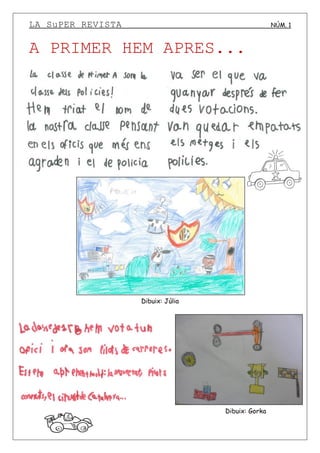 LA SuPER REVISTA
NÚM.1
A PRIMER HEM APRES...
la classe de Primer A som la
classe dels policies!
Hem triat el nom de
la nostra classe pensant
en els oficis que més ens
agraden i el de policia
va ser el que va
guanyar després de fer
dues votacions.
Van quedar empatats
els metges i els
policies.
Dibuix: Júlia
La classe de 1r B hem votat un
ofici i ara som pilots de carreres.
Estem
el circuit de Catalunya...
Dibuix: Gorka